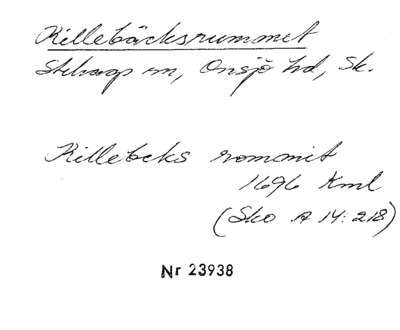 Killebäcksrummet
Stehag sn, Onsjö hd, Sk.
Killebcks rommit
1696 Kml
(Sko A 14:218)
Nr 23938